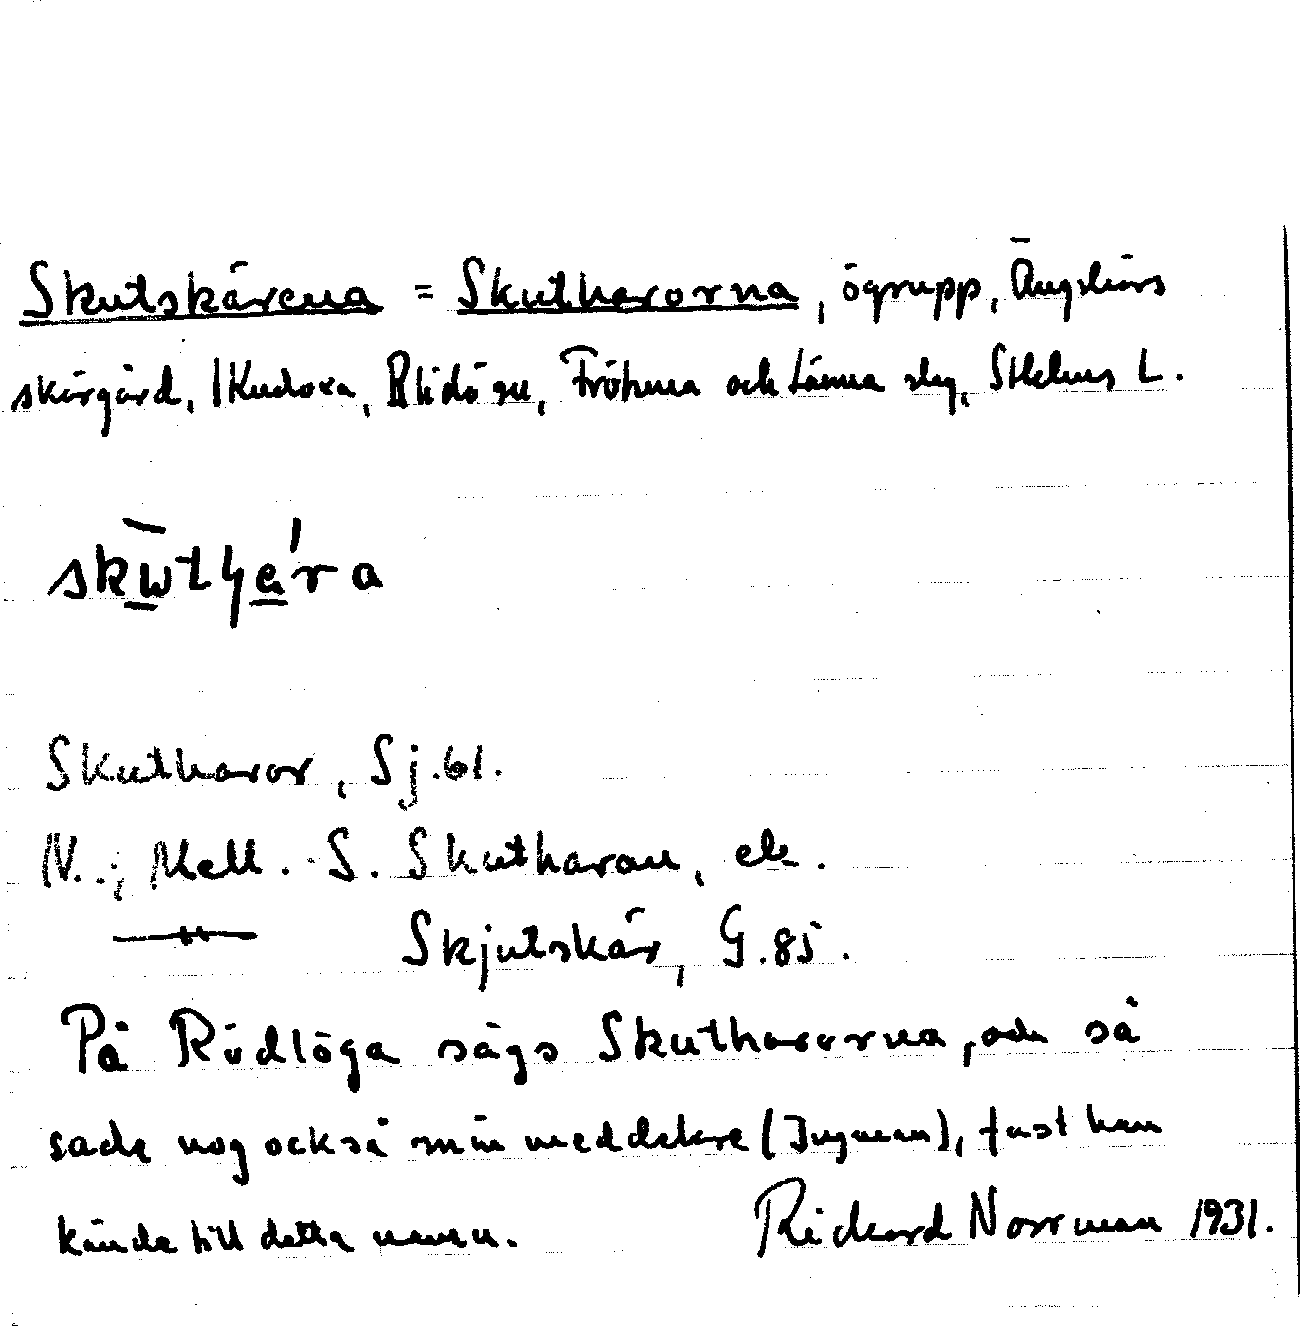 Skutskärena = Skutharorna, ögrupp, Ängskärs
skärgård, Kudoxa, Blidö sn, Fröhuna och Länna slg, Sthlms L.
Skutharor, Sj. 61.
N., Mell. S. Skutharan, etc.
—"— Skjutskär, G. 85.
På Rödlöga sägs Skutharorna, och så
sade nog också min meddelare (Ingman), fast han
kände till detta namn. Rickard Norrman 1931.